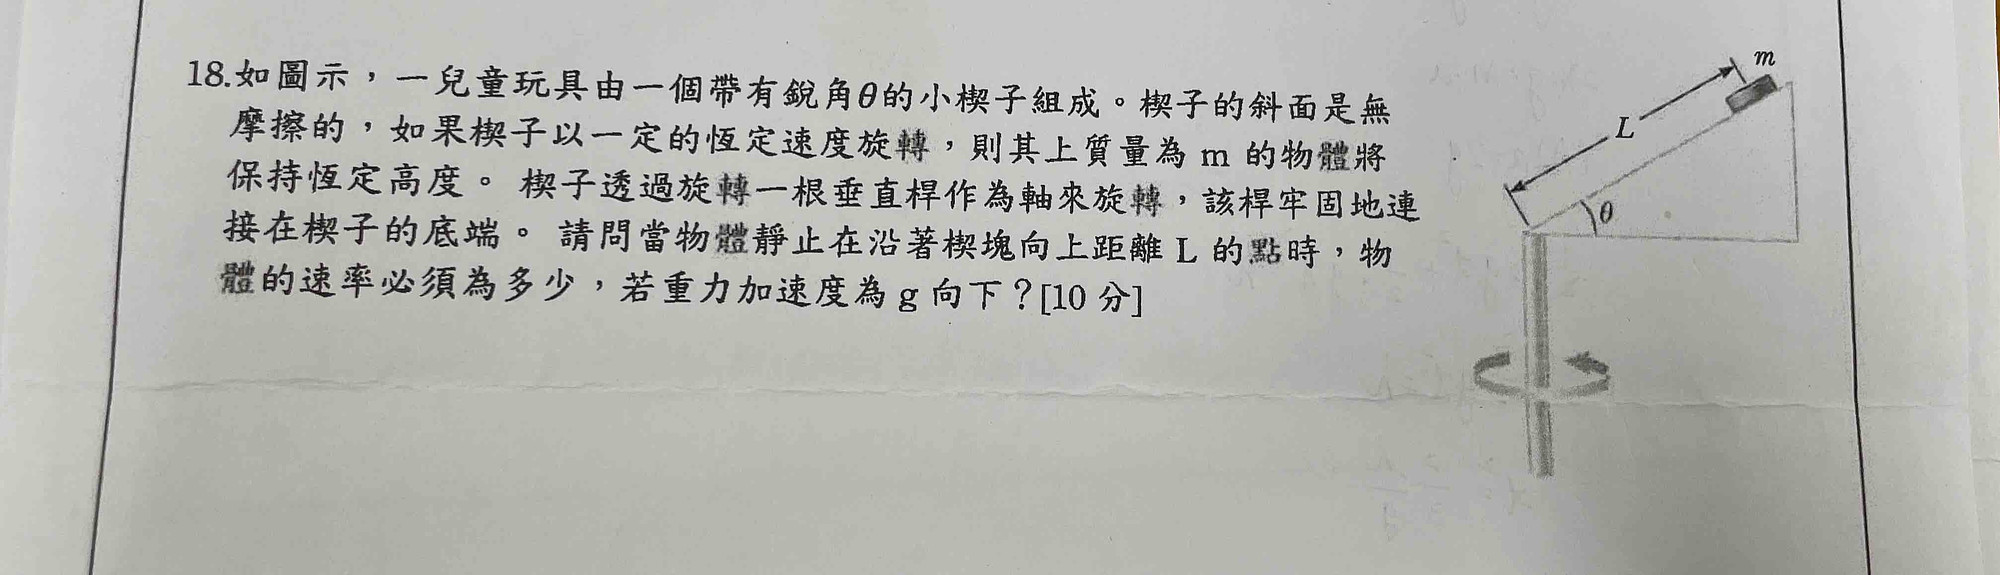 18.如圖示，一兒童玩具由一個帶有銳角θ的小楔子組成。楔子的斜面是無
摩擦的，如果楔子以一定的恆定速度旋轉，則其上質量為 m 的物體將
保持恆定高度。 楔子透過旋轉一根垂直桿作為軸來旋轉，該桿牢固地連
接在楔子的底端。 請問當物體靜止在沿著楔塊向上距離 L 的點時，物
體的速率必須為多少，若重力加速度為 g 向下？[10 分]
m
L
θ